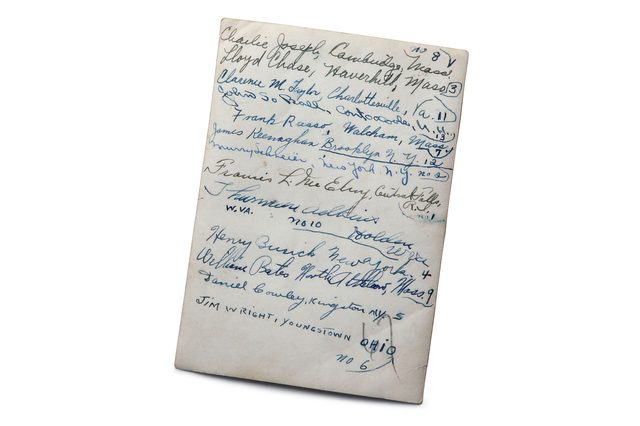 no 8
Charlie Joseph, Cambridge, Mass.
Lloyd Chase, Haverhill, Mass. 3
Clarence M. Taylor Charlottesville, Va. 11
John So N.Y. 13
Frank Russo, Waltham, Mass. 7
James Keenaghan Brooklyn N.Y. 12
New York, N.Y. no 2
Francis L. McElroy, Central Falls,
R.I. 1
Thurman Adkins
W.VA. no 10 Holden W.Va
Henry Busich New York, 4
William Bates North Abington, Mass. 9
Daniel Cowley, Kingston NY. 5
JIM WRIGHT, YOUNGSTOWN OHIO
NO 6